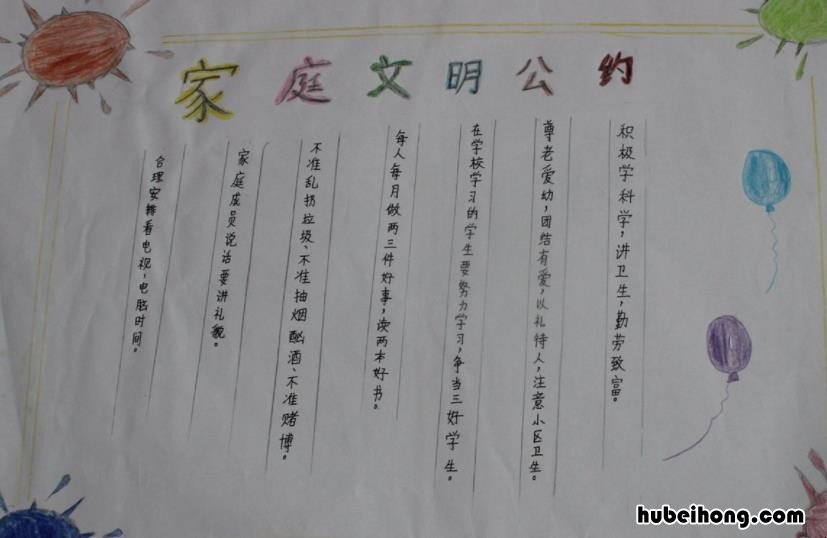 家庭文明公约
积极学科学，讲卫生，勤劳致富。
尊老爱幼，团结有爱，以礼待人，注意小区卫生。
在学校学习的学生要努力学习，争当三好学生。
每人每月做两三件好事，读两本好书。
不准乱扔垃圾、不准抽烟酗酒、不准赌博。
家庭成员说话要讲礼貌。
合理安排看电视，电脑时间。
hubeihong.com